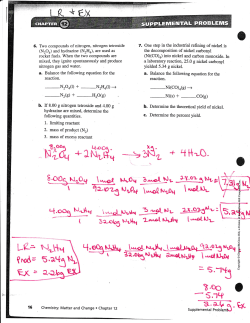 LR + EX
CHAPTER 12
SUPPLEMENTAL PROBLEMS
6. Two compounds of nitrogen, nitrogen tetroxide
(N₂O₄) and hydrazine (N₂H₄), are used as
rocket fuels. When the two compounds are
mixed, they ignite spontaneously and produce
nitrogen gas and water.
a. Balance the following equation for the
reaction.
N₂O₄(l) + N₂H₄(l) →
N₂(g) + H₂O(g)
b. If 8.00 g nitrogen tetroxide and 4.00 g
hydrazine are mixed, determine the
following quantities.
1. limiting reactant
2. mass of product (N₂)
3. mass of excess reactant
7. One step in the industrial refining of nickel is
the decomposition of nickel carbonyl
(Ni(CO)₄) into nickel and carbon monoxide. In
a laboratory reaction, 25.0 g nickel carbonyl
yielded 5.34 g nickel.
a. Balance the following equation for the
reaction.
Ni(CO)₄(g) →
Ni(s) + CO(g)
b. Determine the theoretical yield of nickel.
c. Determine the percent yield.
8.00g 4.00g
N₂O₄ + 2N₂H₄ → 3N₂ + 4H₂O
8.00g N₂O₄ 1mol N₂O₄ 3mol N₂ 28.02g N₂ = 7.31g N₂
92.02g N₂O₄ 1mol N₂O₄ 1mol N₂
4.00g N₂H₄ 1mol N₂H₄ 3mol N₂ 28.02g N₂ = 5.24g N₂
32.06g N₂H₄ 2mol N₂H₄ 1mol N₂
LR = N₂H₄
Prod = 5.24g N₂
Ex = 2.26g Ex
4.00g N₂H₄ 1mol N₂H₄ 1mol N₂O₄ 92.02g N₂O₄
32.06g N₂H₄ 2mol N₂H₄ 1mol N₂O₄
= 5.74g
8.00
- 5.74
2.26g Ex
16 Chemistry: Matter and Change • Chapter 12
Supplemental Problems